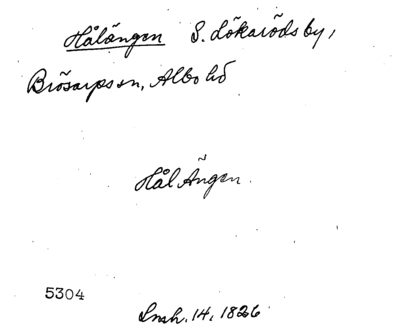 Hålängen S. Lökarödsby,
Brösarps sn, Albo hd
Hål Ängen.
5304
Lnsh. 14, 1826